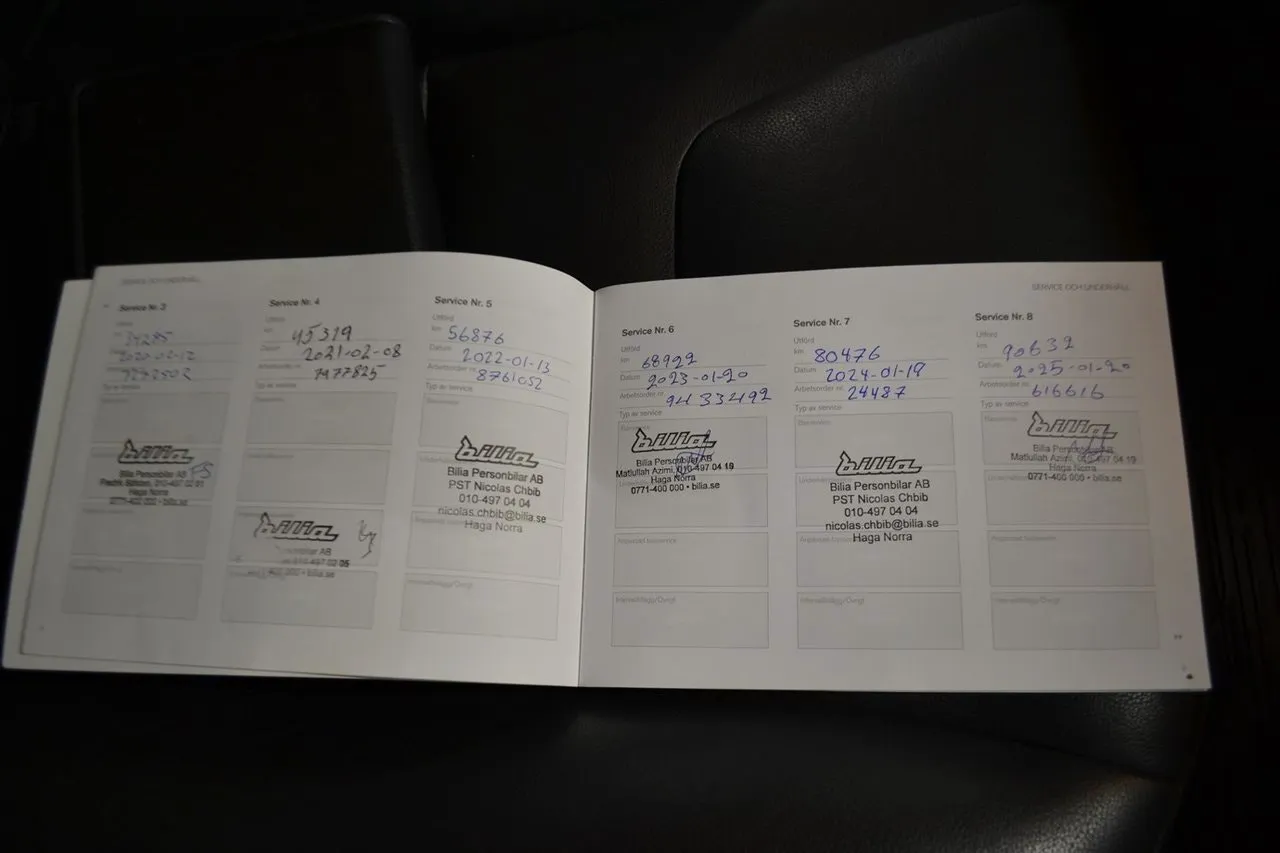 SERVICE OCH UNDERHÅLL
Service Nr. 3
34285
2020-02-12
Typ av service
bilia
Bilia Personbilar AB
Haga Norra
0771-400 000 • bilia.se
Service Nr. 4
Utförd
km 45319
Datum 2021-02-08
Arbetsorder nr. 7477825
Typ av service
bilia
Personbilar AB
010-497 02 05
400 000 • bilia.se
Service Nr. 5
Utförd
km 56876
Datum 2022-01-13
Arbetsorder nr. 8761052
Typ av service
bilia
Bilia Personbilar AB
PST Nicolas Chbib
010-497 04 04
nicolas.chbib@bilia.se
Haga Norra
Service Nr. 6
Utförd
km 68922
Datum 2023-01-20
Arbetsorder nr. 9433492
Typ av service
bilia
Bilia Personbilar AB
Matlullah Azimi, 010-497 04 19
Haga Norra
0771-400 000 • bilia.se
Service Nr. 7
Utförd
km 80476
Datum 2024-01-19
Arbetsorder nr. 24487
Typ av service
bilia
Bilia Personbilar AB
PST Nicolas Chbib
010-497 04 04
nicolas.chbib@bilia.se
Haga Norra
SERVICE OCH UNDERHÅLL
Service Nr. 8
Utförd
km 90632
Datum 2025-01-20
Arbetsorder nr. 616616
Typ av service
bilia
Bilia Personbilar AB
Matlullah Azimi, 010-497 04 19
Haga Norra
0771-400 000 • bilia.se